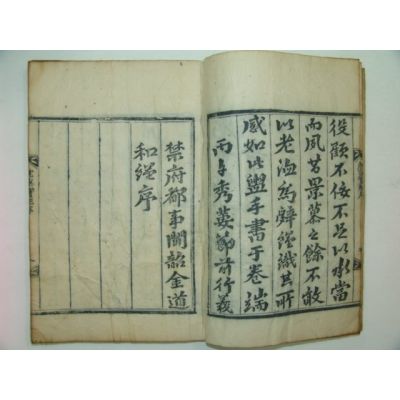 役顧不佞不足以承當
而夙昔景慕之餘不敢
以老洫為辭謹識其所
感如此盥手書于卷端
丙午秀葽節前行義
禁府都事聞韶金道
和謹序